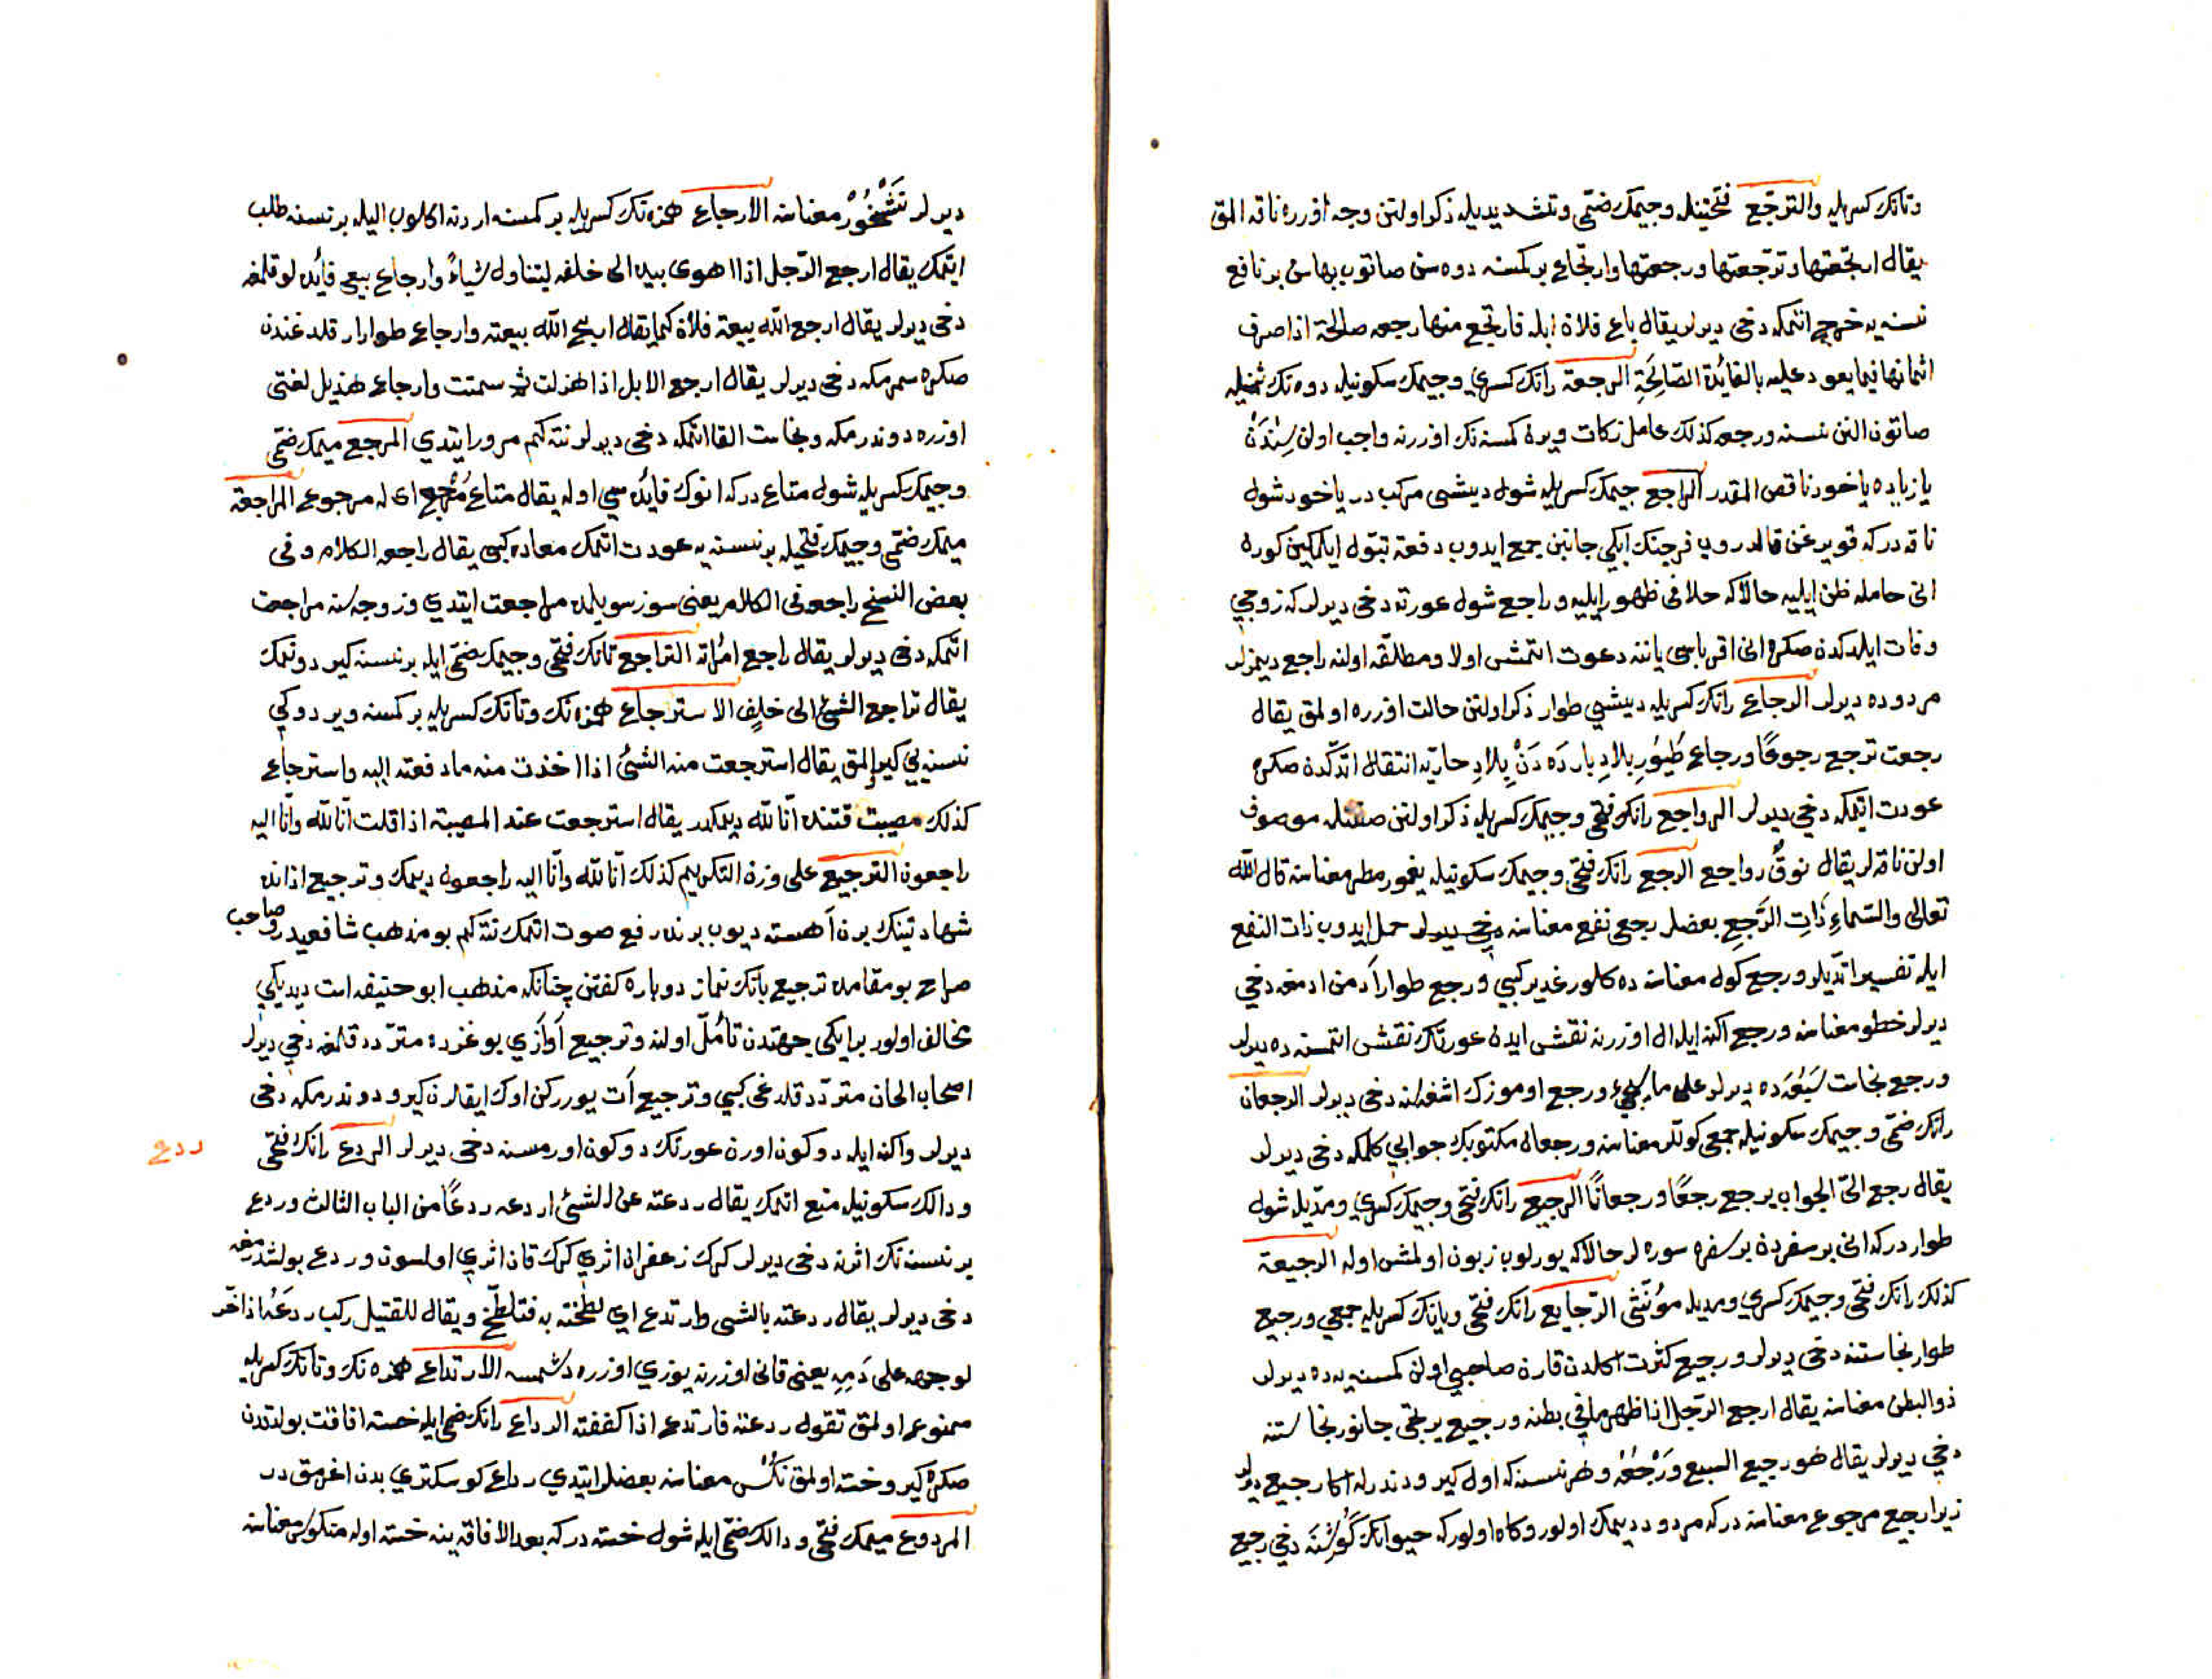 وتانك كسريله والترجّع فتحتينله وجيمك ضمّى وتشديديله ذكر اولنن وجه اوزره ناقه المق
يقال ارتجعتها وترجّعتها ورجعتها وارتجاع بر كمسنه دوه سن صاتوب بهاسن بر نافع
نسنه يه خرج اتمكه دخى ديرلر يقال باع فلان ابله فارتجع منها رجعه صالحة اذا صرف
اثمانها فيما يعود عليه بالفائدة الصّالِحَةِ الرجعة رانك كسرى وجيمك سكونيله دوه نك ثمنيله
صاتون النن نسنه ورجعه كذلك عامل زكات ويرن كمسنه نك اوزرنه واجب اولن سِنْدَنْ
يا زياده ياخود ناقص المقدر الراجع جيمك كسريله شول ديشى مركب در ياخود شول
ناقه دركه قويرغن قالدروب فرجنك ايكى جانبن جمع ايدوب دفعة تبوّل ايلمكين كورن
انى حامله ظن ايليه حالاكه حلافى ظهور ايليه وراجع شول عورته دخى ديرلر كه زوجى
وفات ايلدكدن صكره انى اقرباسى ياننه دعوت اتمش اولا ومطلّقه اولنه راجع ديمزلر
مردوده ديرلر الرجاع رانك كسريله ديشى طوار ذكر اولنن حالت اوزره اولمق يقال
رجعت ترجع رجوعًا ورجاع طُيُورِ بلادِ بارَدَه دَنْ بِلادِ حارّيه انتقال اتدكدن صكره
عودت ايتمكه دخى ديرلر الرواجع رانك فتحى وجيمك كسريله ذكر اولنن صفتله موصوف
اولن ناقه لر يقال نوقٌ رواجع الرجع رانك فتحى وجيمك سكونيله يغمور مطر معناسنه قال الله
تعالى والسّماءِ ذَاتِ الرَّجعِ بعضلر رجعى نفع معناسنه دخى ديرلر حمل ايدوب ذات النفع
ايله تفسير اتديلر ورجع كول معناسنه ده كلور غدير كبى ورجع طوار آدمن ادمغه دخى
ديرلر خطو معناسنه ورجع اكنه ايله ال اوزرنه نقش ايدن عورتك نقش اتمسنه ده ديرلر
ورجع نجاست سَبُعَه ده ديرلر على ما يجىء ورجع اوموزك اشغه سنه دخى ديرلر الرجعان
رانك ضمّى وجيمك سكونيله جمعى كوللر معناسنه ورجعان مكتوبك جوابى كلمكه دخى ديرلر
يقال رجع الىّ الجواب يرجع رجعًا ورجعانًا الرجيع رانك فتحى وجيمك كسرى ومدّيله شول
طوار دركه انى بر سفردن بر سفره سوره لر حالاكه يورلوب زبون اولمش اوله الرجيعة
كذلك رانك فتحى وجيمك كسرى ومديله مؤنثى الرّجايع رانك فتحى ويانك كسريله جمعى ورجيع
طوار نجاستنه دخى ديرلر ورجيع كثرت اكلدن قارن صاحبى اولن كمسنه يه ده ديرلر
ذوالبطن معناسنه يقال ارجع الرّجل اذا ظهر ما فى بطنه ورجيع يرتجى جانور نجاستنه
دخى ديرلر يقال هو رجيع السبع وَرَجْعُهُ وهر نسنه كه اول كيرو دندرله اكا رجيع ديرلر
زيرا رجيع مرجوع معناسنه دركه مردود ديمك اولور وكاه اولوركه حيوانك كَوِشنَه دخى رجيع
ديرلر نَشْخُورْ معناسنه الارجاع همزه نك كسريله بر كمسنه اردنه اكلوب اليله بر نسنه طلب
ايتمك يقال ارجع الرّجل اذا اهوى بيده الى خلفه ليتناول شياءً وارجاع بيعى فائده لو قلمغه
دخى ديرلر يقال ارجع الله بيعة فلان كما يقال اربح الله بيعته وارجاع طوارار قلدغندن
صكره سمرمكه دخى ديرلر يقال ارجع الابل اذا هزلت ثم سمنت وارجاع هذيل لغتى
اوزره دوندرمكه ونجاست القا اتمكه دخى ديرلر نته كم مرور ايتدى المرجع ميمك ضمّى
وجيمك كسريله شول متاع دركه انوك فايده سى اوله يقال متاع مُرْجِع اى له مرجوع المراجعة
ميمك ضمّى وجيمك فتحيله بر نسنه يه عودت اتمك معاده كبى يقال راجعه الكلام وفى
بعض النسخ راجعه فى الكلام يعنى سوز سويلمده مراجعت ايتدى وزوجه سنه مراجعت
اتمكه دخى ديرلر يقال راجع امراته التراجع تانك فتحى وجيمك ضمّى ايله بر نسنه كيرو دونمك
يقال تراجع الشئ الى خلفٍ الاسترجاع همزه نك وتانك كسريله بر كمسنه ويردوكى
نسنه يى كيرو المق يقال استرجعت منه الشئ اذا اخذت منه ما دفعته اليه واسترجاع
كذلك مصيبت قتنده انّا لله ديمكدر يقال استرجعت عند المصيبة اذا قلت انّا لله وانّا اليه
راجعون الترجيع على وزن التكريم كذلك انّا لله وانّا اليه راجعون ديمك وترجيع اذانده
شهادتينك برن آهسته ديوب برنده رفع صوت اتمك نته كم بو مذهب شافعيدر وصاحب
صراح بو مقامده ترجيع بانك نماز دوباره كفتن چنانكه مذهب ابو حنيفه است ديديكى
مخالف اولور بر ايكى جهتدن تأمّل اولنه وترجيع آوازى بوغزده متردّد قلمغه دخى ديرلر
اصحاب الحان متردّد قلدغى كبى وترجيع آت يورركن اوك ايقلرن كيرو دوندرمكه دخى
ديرلر واكنه ايله دوكون اورن عورتك دوكون اورمسنه دخى ديرلر الردع رانك فتحى
ردع
ودالك سكونيله منع اتمك يقال ردعته عن الشئ اردعه ردعًا من الباب الثالث وردع
بر نسنه نك اثرنه دخى ديرلر كرك زعفران اثرى كرك قان اثرى اولسون وردع بولشدرمغه
دخى ديرلر يقال ردعته بالشى فارتدع اى لطخته به فتلطّخ ويقال للقتيل ركب ردعَهُ اذا خّر
لوجهه على دَمِهِ يعنى قانى اوزرنه يوزى اوزره دشمسه الارتداع همزه نك وتانك كسريله
ممنوع اولمق تقول ردعته فارتدع اذا كففته الرداع رانك ضمى ايله خسته افاقت بولدقدن
صكره كيرو خسته اولمق نُكْس معناسنه بعضلر ايتدى رداع كوسكترى بدن اغرمق در
المردوع ميمك فتحى ودالك ضمّى ايله شول خسته دركه بعد الافاقه ينه خسته اوله منكوس معناسنه